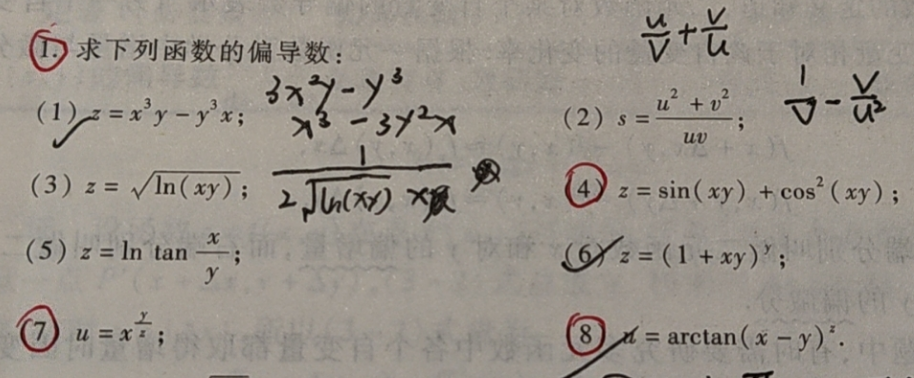 1. 求下列函数的偏导数:
u/v + v/u
(1) z = x³y − y³x;
3x²y − y³
x³ − 3y²x
(2) s = (u² + v²)/(uv);
1/v − v/u²
(3) z = √(ln(xy));
1/(2√(ln(xy)) x)
(4) z = sin(xy) + cos²(xy);
(5) z = ln tan x/y;
(6) z = (1 + xy)^y;
(7) u = x^(y/z);
(8) u = arctan(x − y)^z.